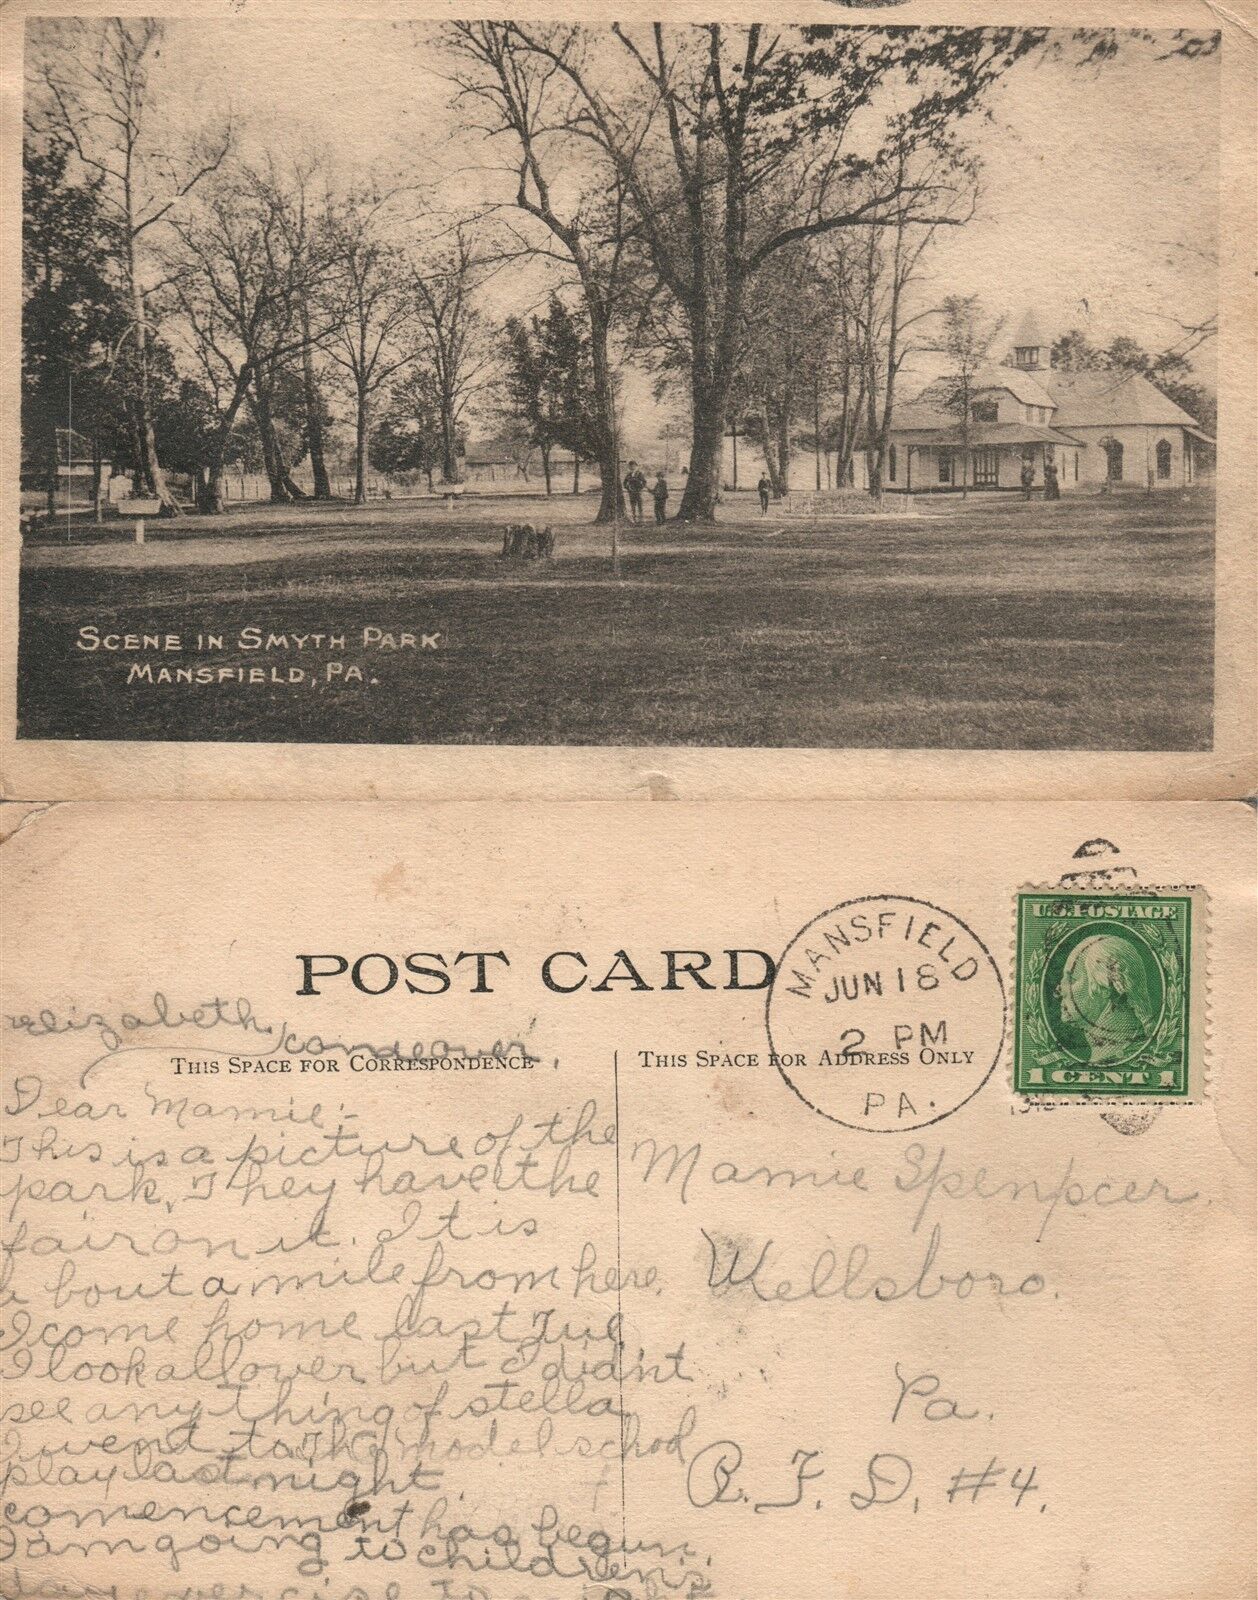 SCENE IN SMYTH PARK
MANSFIELD, PA.
POST CARD
MANSFIELD
JUN 18
2 PM
PA.
U.S. POSTAGE
1 CENT 1
Elizabeth
comeover.
THIS SPACE FOR CORRESPONDENCE
THIS SPACE FOR ADDRESS ONLY
Dear Mamie:-
This is a picture of the
park. They have the
fair on it. It is
a bout a mile from here.
I come home last Tue.
I look all over but I did'nt
see any thing of stella.
I went to The model school
play last night.
comencement has begun.
I am going to children's
day exercise to
Mamie Spenpcer.
Wellsboro.
Pa.
R. F. D. #4.